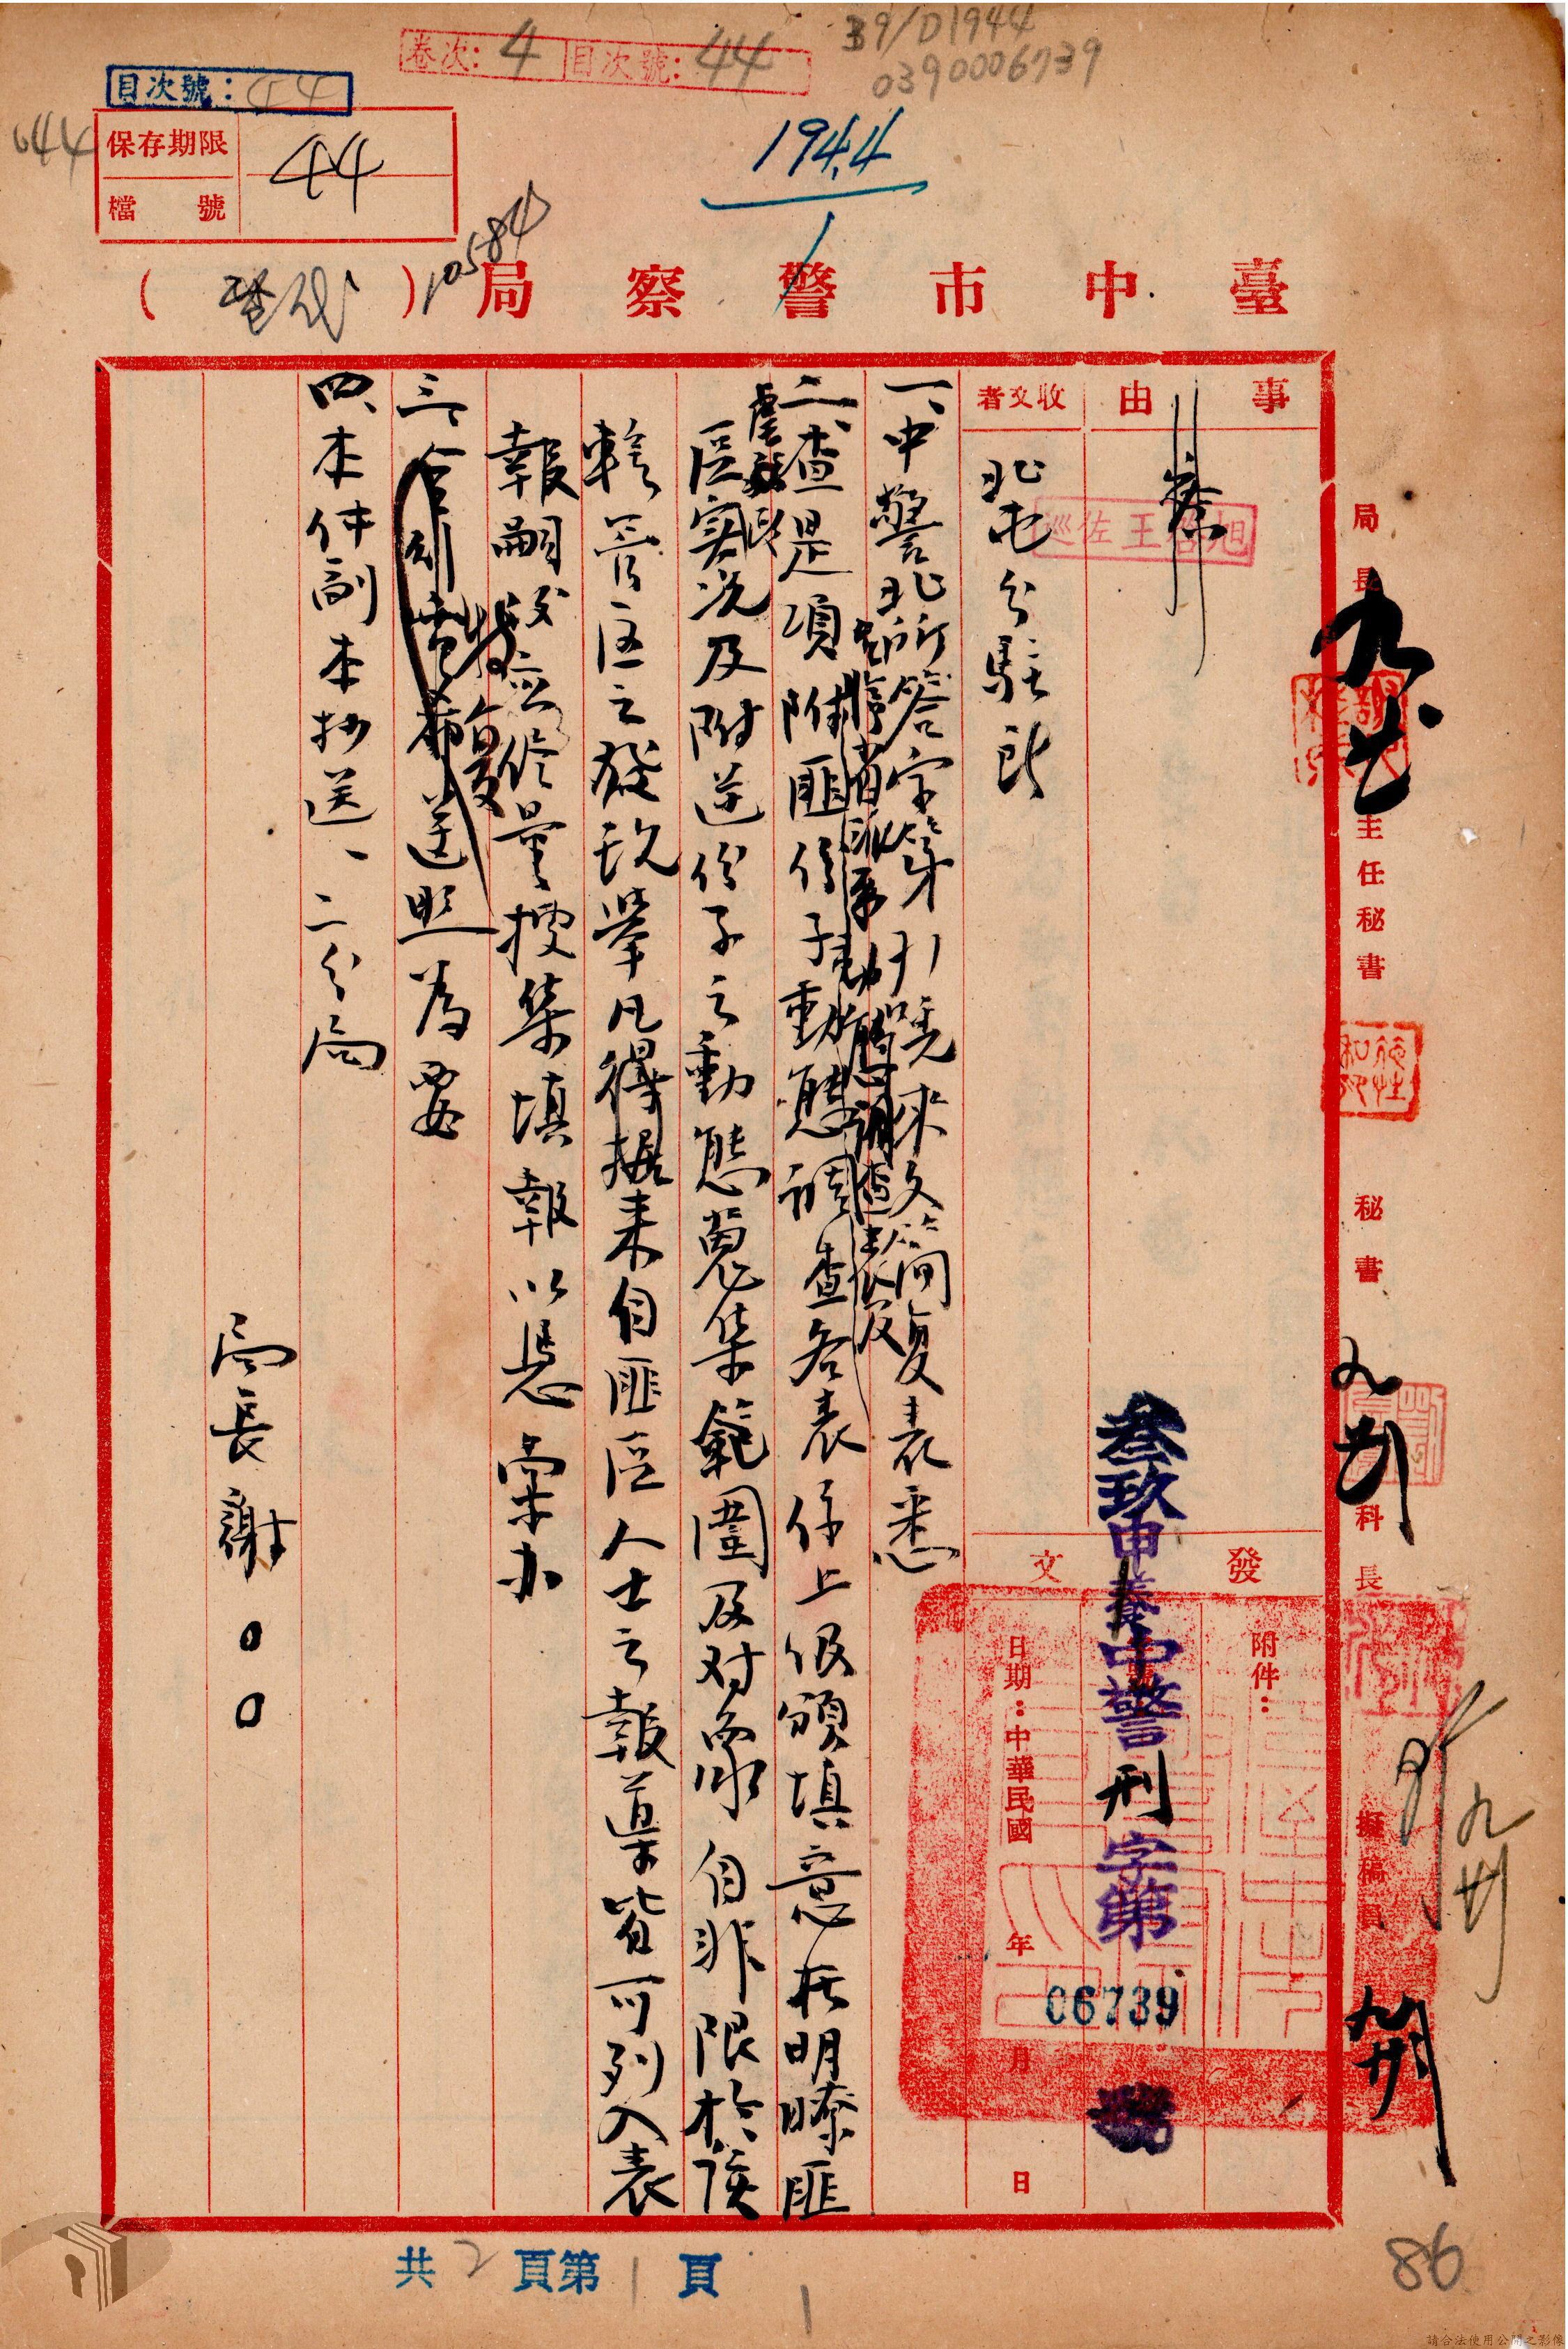 卷次：4 目次號：44
39/D1944
0390006739
目次號：44
644
保存期限
檔號
44
1944
10584
臺中市警察局（）
事由
收文者
北屯分駐所
巡佐王啓旭
發文
附件：
日期：中華民國 年 月 日
叁玖申養中警刑字第06739號
一、中警北所答字第引號來文簡复表悉
二、查是項附匪份子動態調查各表係上級頒填意在明瞭匪
區実況及附逆份子之動態蒐集範圍及对象自非限於該
轄管區之發現舉凡得據来自匪區人士之報導皆可列入表
報嗣後應侭量搜集填報以憑彙办
三、特复希逕照為要
四、本件副本抄送一、二分局
局長謝○○
局長
主任秘書
秘書
科長
擬稿員
共2頁第1頁
1
86
請合法使用公開之影像